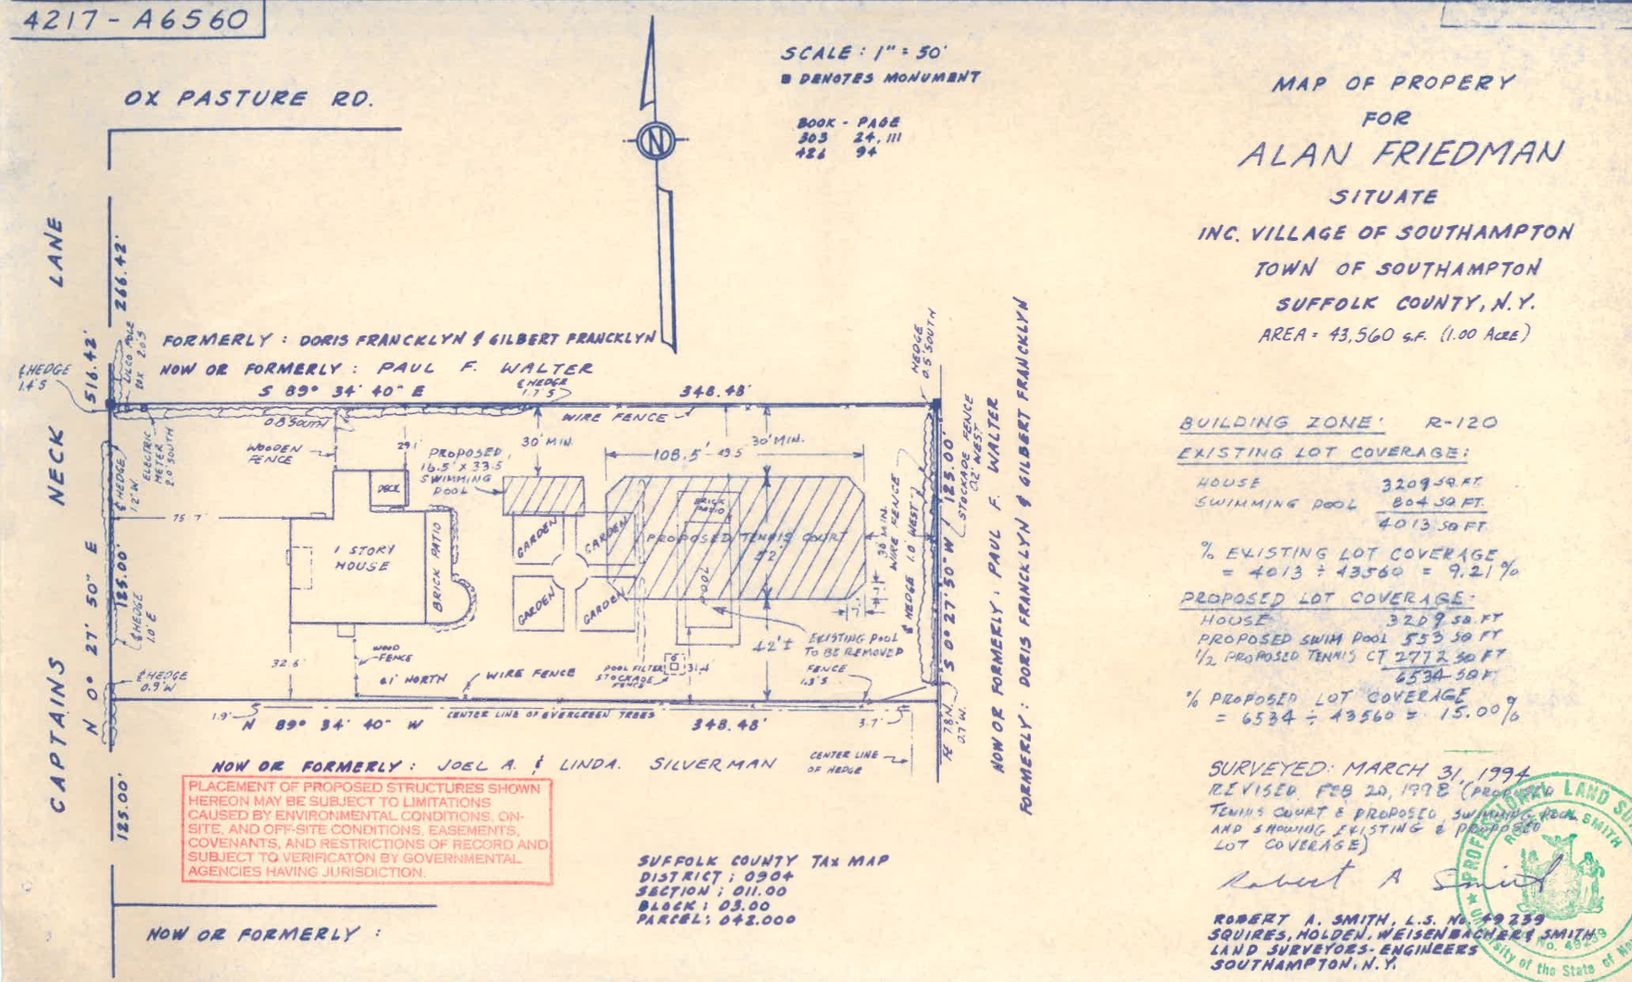 4217-A6560
OX PASTURE RD.
SCALE: 1" = 50'
DENOTES MONUMENT
BOOK - PAGE
303 24, 111
426 94
N
MAP OF PROPERY
FOR
ALAN FRIEDMAN
SITUATE
INC. VILLAGE OF SOUTHAMPTON
TOWN OF SOUTHAMPTON
SUFFOLK COUNTY, N.Y.
AREA = 43,560 S.F. (1.00 ACRE)
CAPTAINS NECK LANE
516.42'
266.42'
N 0° 27' 50" E
125.00'
125.00'
FORMERLY: DORIS FRANCKLYN & GILBERT FRANCKLYN
NOW OR FORMERLY: PAUL F. WALTER
S 89° 34' 40" E
348.48'
℄ HEDGE
1.4'S
LILCO POLE
BOX 20.5
℄ HEDGE
1.7'S
HEDGE
0.5' SOUTH
0.8 SOUTH
WIRE FENCE
WOODEN
FENCE
ELECTRIC
METER
2.0' SOUTH
℄ HEDGE
1.2'W
29.1'
PROPOSED
16.5' X 33.5
SWIMMING
POOL
30' MIN.
108.5'
49.5
30' MIN.
75.7'
DECK
1 STORY
HOUSE
BRICK PATIO
GARDEN
GARDEN
GARDEN
GARDEN
BRICK
PATIO
PROPOSED TENNIS COURT
52'
POOL
30' MIN.
WIRE FENCE
℄ HEDGE 1.0' WEST
STOCKADE FENCE
0.2' WEST
S 0° 27' 50" W 125.00'
7'
EXISTING POOL
TO BE REMOVED
42'±
℄ HEDGE
1.0' E
℄ HEDGE
0.9'W
32.6'
WOOD
FENCE
0.1' NORTH
WIRE FENCE
POOL FILTER
STOCKADE
FENCE
6
31.4
FENCE
1.3'S
1.9'
N 89° 34' 40" W
CENTER LINE OF EVERGREEN TREES
348.48'
3.7'
FE 7.8 N.
0.7' W.
CENTER LINE
OF HEDGE
NOW OR FORMERLY: PAUL F. WALTER
FORMERLY: DORIS FRANCKLYN & GILBERT FRANCKLYN
NOW OR FORMERLY: JOEL A. & LINDA. SILVERMAN
PLACEMENT OF PROPOSED STRUCTURES SHOWN
HEREON MAY BE SUBJECT TO LIMITATIONS
CAUSED BY ENVIRONMENTAL CONDITIONS, ON-
SITE, AND OFF-SITE CONDITIONS, EASEMENTS,
COVENANTS, AND RESTRICTIONS OF RECORD AND
SUBJECT TO VERIFICATON BY GOVERNMENTAL
AGENCIES HAVING JURISDICTION.
SUFFOLK COUNTY TAX MAP
DISTRICT: 0904
SECTION: 011.00
BLOCK: 03.00
PARCEL: 042.000
NOW OR FORMERLY:
BUILDING ZONE: R-120
EXISTING LOT COVERAGE:
HOUSE 3209 SQ. FT.
SWIMMING POOL 804 SQ FT.
4013 SQ FT.
% EXISTING LOT COVERAGE
= 4013 ÷ 43560 = 9.21%
PROPOSED LOT COVERAGE:
HOUSE 3209 SQ. FT
PROPOSED SWIM POOL 553 SQ FT
1/2 PROPOSED TENNIS CT 2772 SQ FT
6534 SQ FT
% PROPOSED LOT COVERAGE
= 6534 ÷ 43560 = 15.00%
SURVEYED: MARCH 31, 1994
REVISED FEB 20, 1998 (PROPOSED
TENNIS COURT & PROPOSED SWIMMING POOL
AND SHOWING EXISTING & PROPOSED
LOT COVERAGE)
Robert A Smith
ROBERT A. SMITH, L.S. No. 49239
SQUIRES, HOLDEN, WEISENBACHER & SMITH
LAND SURVEYORS-ENGINEERS
SOUTHAMPTON, N.Y.
PROFESSIONAL LAND SU
ROBERT A. SMITH
No. 49239
University of the State of Ne